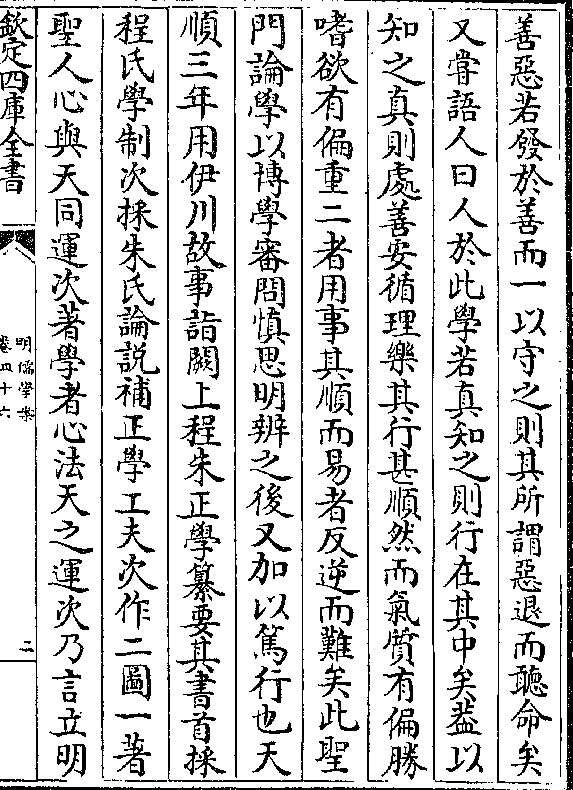 善惡若發於善而一以守之則其所謂惡退而聽命矣
又嘗語人曰人於此學若真知之則行在其中矣葢以
知之真則處善安循理樂其行甚順然而氣質有偏勝
嗜欲有偏重二者用事其順而易者反逆而難矣此聖
門論學以博學審問慎思明辨之後又加以篤行也天
順三年用伊川故事詣闕上程朱正學纂要其書首採
程氏學制次採朱氏論說補正學工夫次作二圖一著
聖人心與天同運次著學者心法天之運次乃言立明
欽定四庫全書
明儒學案
卷四十六
二